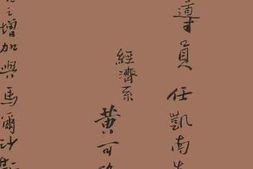 導員 任凱南
經濟系
黃可
之增加與馬爾